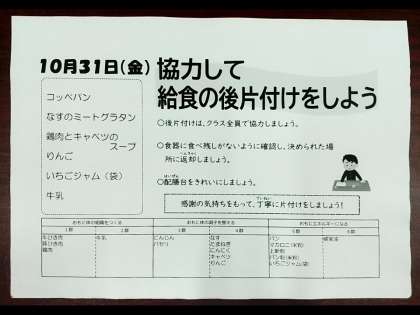 10月31日(金)
協力して
給食の後片付けをしよう
コッペパン
なすのミートグラタン
鶏肉とキャベツの
スープ
りんご
いちごジャム(袋)
牛乳
○後片付けは、クラス全員で協力しましょう。
○食器に食べ残しがないように確認し、決められた場
所に返却しましょう。
○配膳台をきれいにしましょう。
感謝の気持ちをもって、丁寧に片付けをしましょう!
おもに体の組織をつくる
おもに体の調子を整える
おもにエネルギーになる
1群 2群 3群 4群 5群 6群
牛ひき肉
豚ひき肉
鶏肉
牛乳
にんじん
パセリ
なす
たまねぎ
にんにく
キャベツ
りんご
パン
マカロニ(米粉)
上新粉
パン粉(米粉)
いちごジャム(袋)